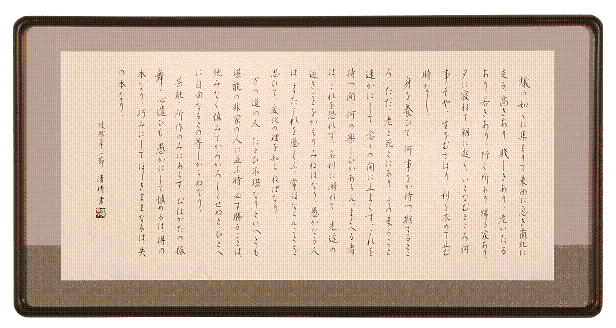 蟻の如くに集まりて東西に急ぎ南北に
走る 高きあり 賤しきあり 老いたる
あり 若きあり 行く所あり 帰る家あり
夕に寝ねて 朝に起く いとなむところ何
事ぞや 生をむさぼり 利を求めて止む
時なし
身を養ひて 何事をか待つ 期するとこ
ろ ただ 老と死とにあり その来ること
速かにして 念々の間に止まらず これを
待つ間 何の楽しびかあらん まどへる者
はこれを恐れず 名利に溺れて 先途の
近きことをかへりみねばなり 愚かなる人
はまたこれを悲しぶ 常住ならんことを
思ひて 変化の理を知らねばなり
万の道の人 たとひ不堪なりといへども
堪能の非家の人に並ぶ時 必ず勝ることは
弛みなく慎みてかろがろしくせぬと ひとへ
に自由なるとの等しからぬなり
芸能 所作のみにあらず おほかたの振
舞 心遣ひも 愚かにして慎めるは 得の
本なり 巧みにしてほしきままなるは 失
の本なり
徒然草一節 書